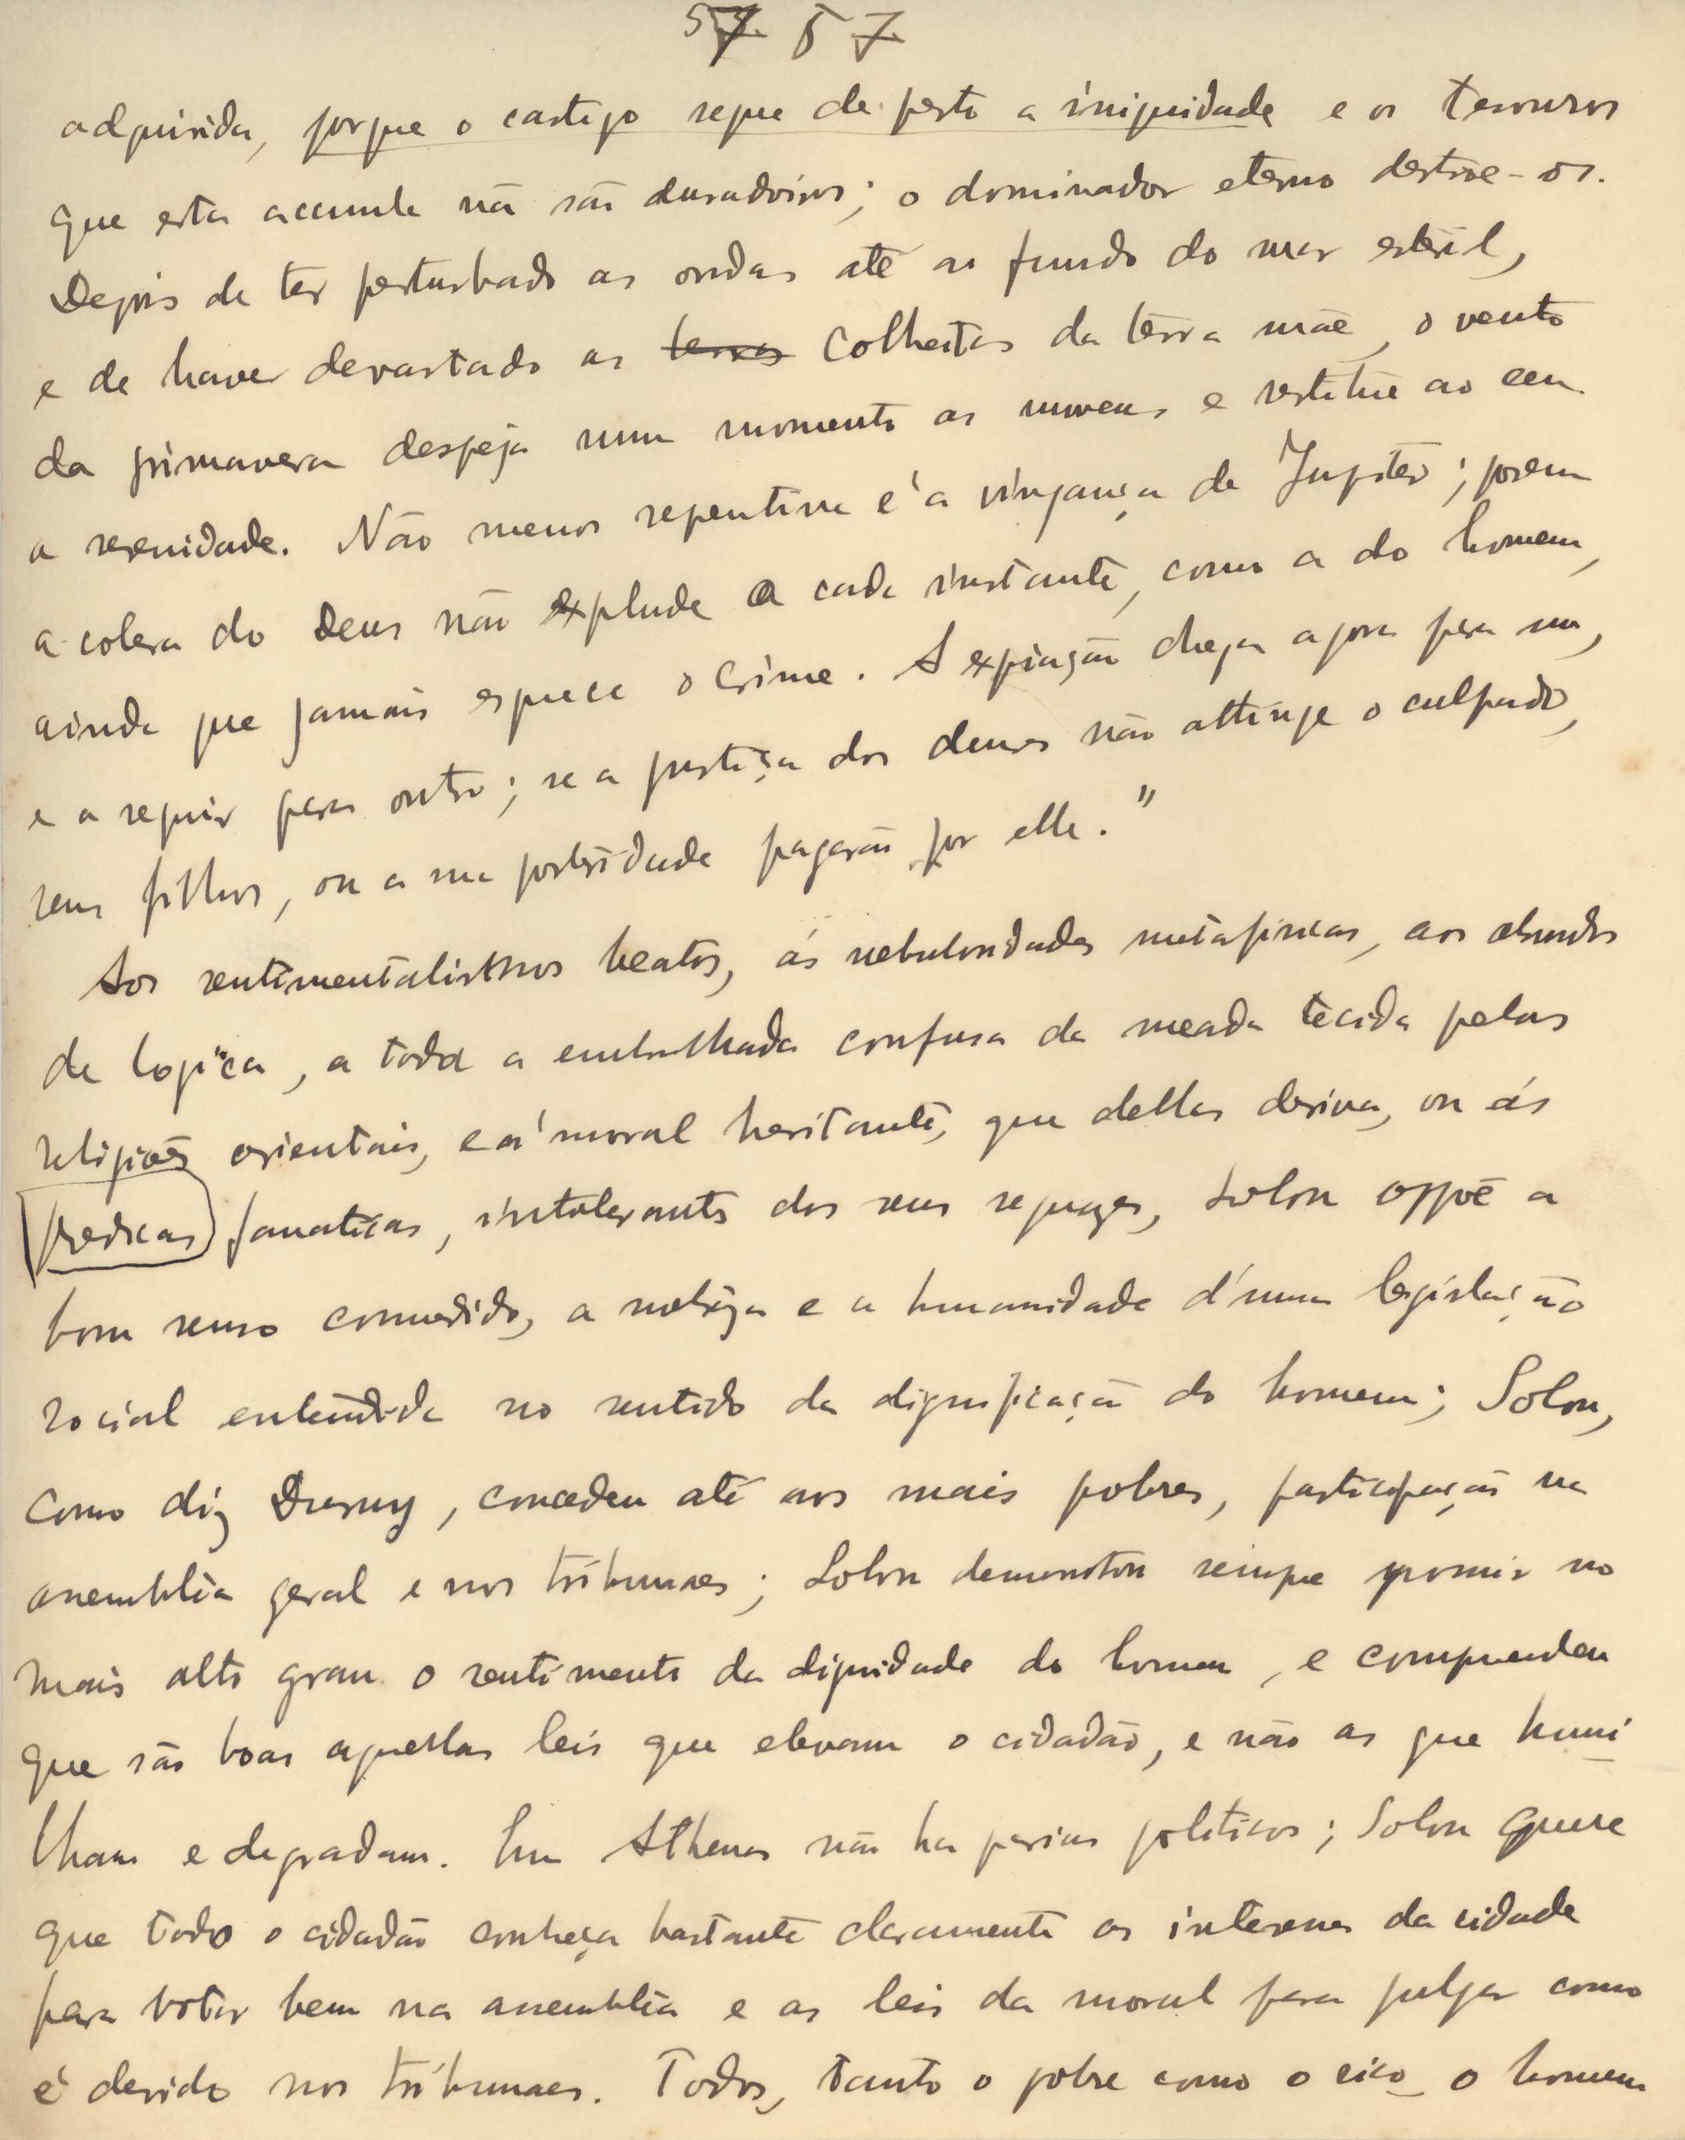 57 57
adquirida, porque o castigo segue de perto a iniquidade e os tesouros
que esta accumula não são duradoiros; o dominador eterno destroe-os.
Depois de ter perturbado as ondas até ao fundo do mar esteril,
e de haver devastado as terras colheitas da terra mãe, o vento
da primavera despeja num momento as nuvens e restitue ao ceu
a serenidade. Não menos repentina é a vingança de Jupiter; porem
a colera do Deus não explude a cada instante, como a do homem,
ainda que jamais esquece o crime. A expiação chega agora para um,
e a seguir para outro; se a justiça dos deuses não attinge o culpado,
seus filhos, ou a sua posteridade pagarão por elle."
Aos sentimentalismos beatos, ás nebulosidades metafisicas, aos absurdos
de logica, a toda a embrulhada confusa da meada tecida pelas
religiões orientais, e á moral hesitante, que dellas deriva, ou ás
predicas fanaticas, intolerants dos seus sequazes, Solon oppoē a
bom senso comedido, a nobreza e a humanidade d'uma legislação
social entendida no sentido da dignificação do homem; Solon,
como diz Duruy, concedeu até aos mais pobres, participação na
assemblêa geral e nos tribunaes; Solon demonstrou sempre possuir no
mais alto grau o sentimento da dignidade do homem, e comprendeu
que são boas aquellas leis que elevam o cidadão, e não as que humi
lham e degradam. Em Athenas não ha parias politicos; Solon quere
que todo o cidadão conheça bastante claramente os interesses da cidade
para votar bem na assemblêa e as leis da moral para julgar como
é devido nos tribunaes. Todos, tanto o pobre como o rico o homem